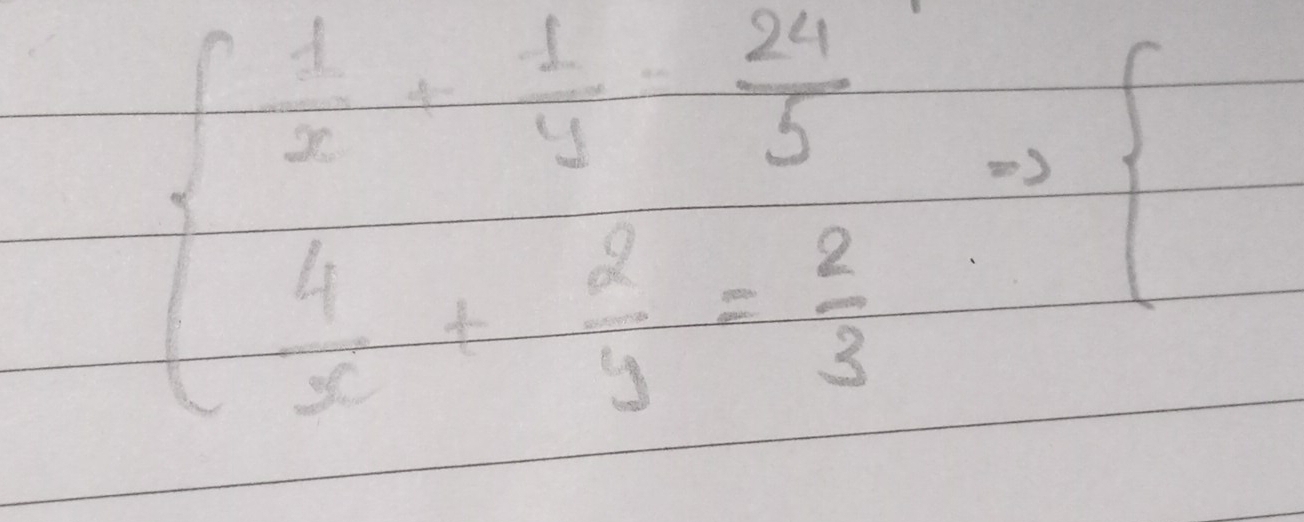 { 1/x + 1/y = 24/5 => {
4/x + 2/y = 2/3